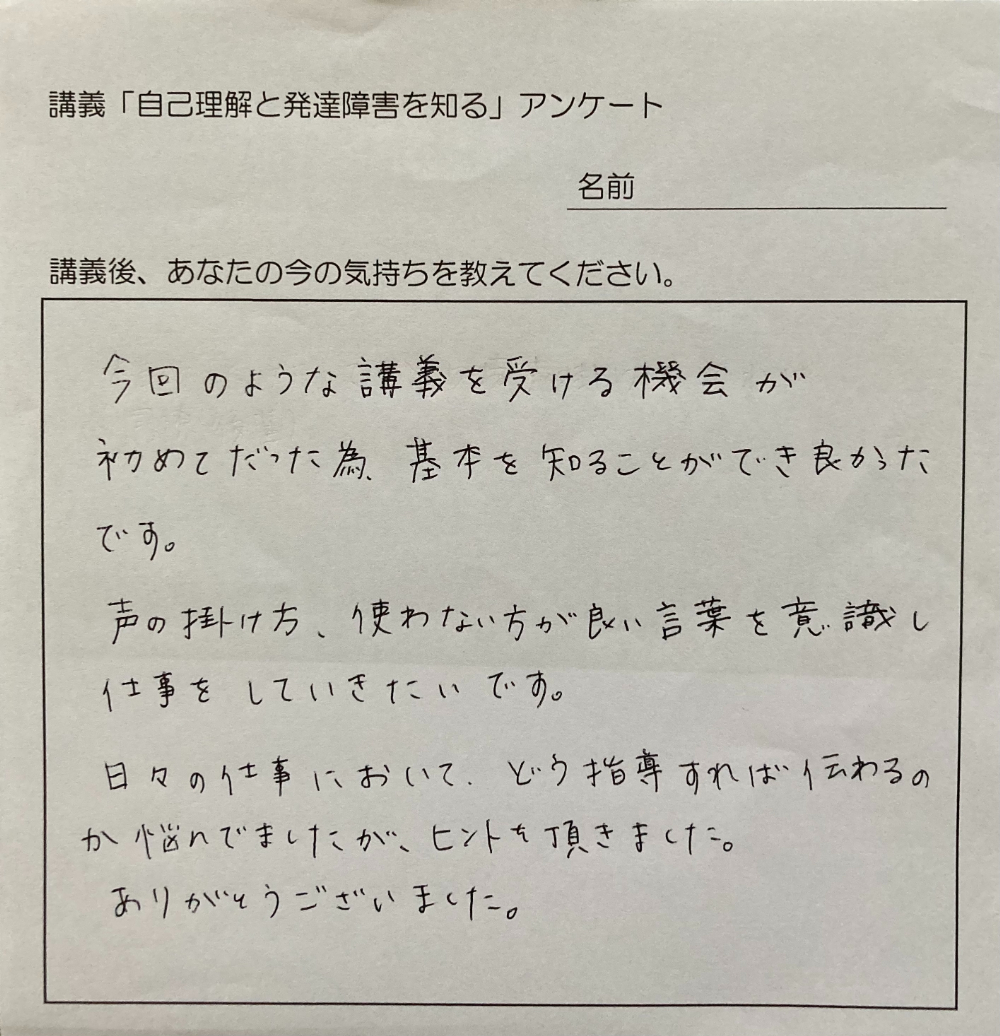 講義「自己理解と発達障害を知る」アンケート
名前
講義後、あなたの今の気持ちを教えてください。
今回のような講義を受ける機会が
初めてだった為、基本を知ることができ良かった
です。
声の掛け方、使わない方が良い言葉を意識し
仕事をしていきたいです。
日々の仕事において、どう指導すれば伝わるの
か悩んでましたが、ヒントを頂きました。
ありがとうございました。